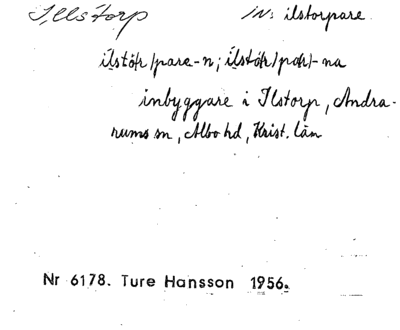 Illstorp IN: ilstorpare
ilstår/pare-n; ilstår/par/-na
inbyggare i Ilstorp, Andra-
rums sn, Albo hd, Krist. län
Nr 6178. Ture Hansson 1956.